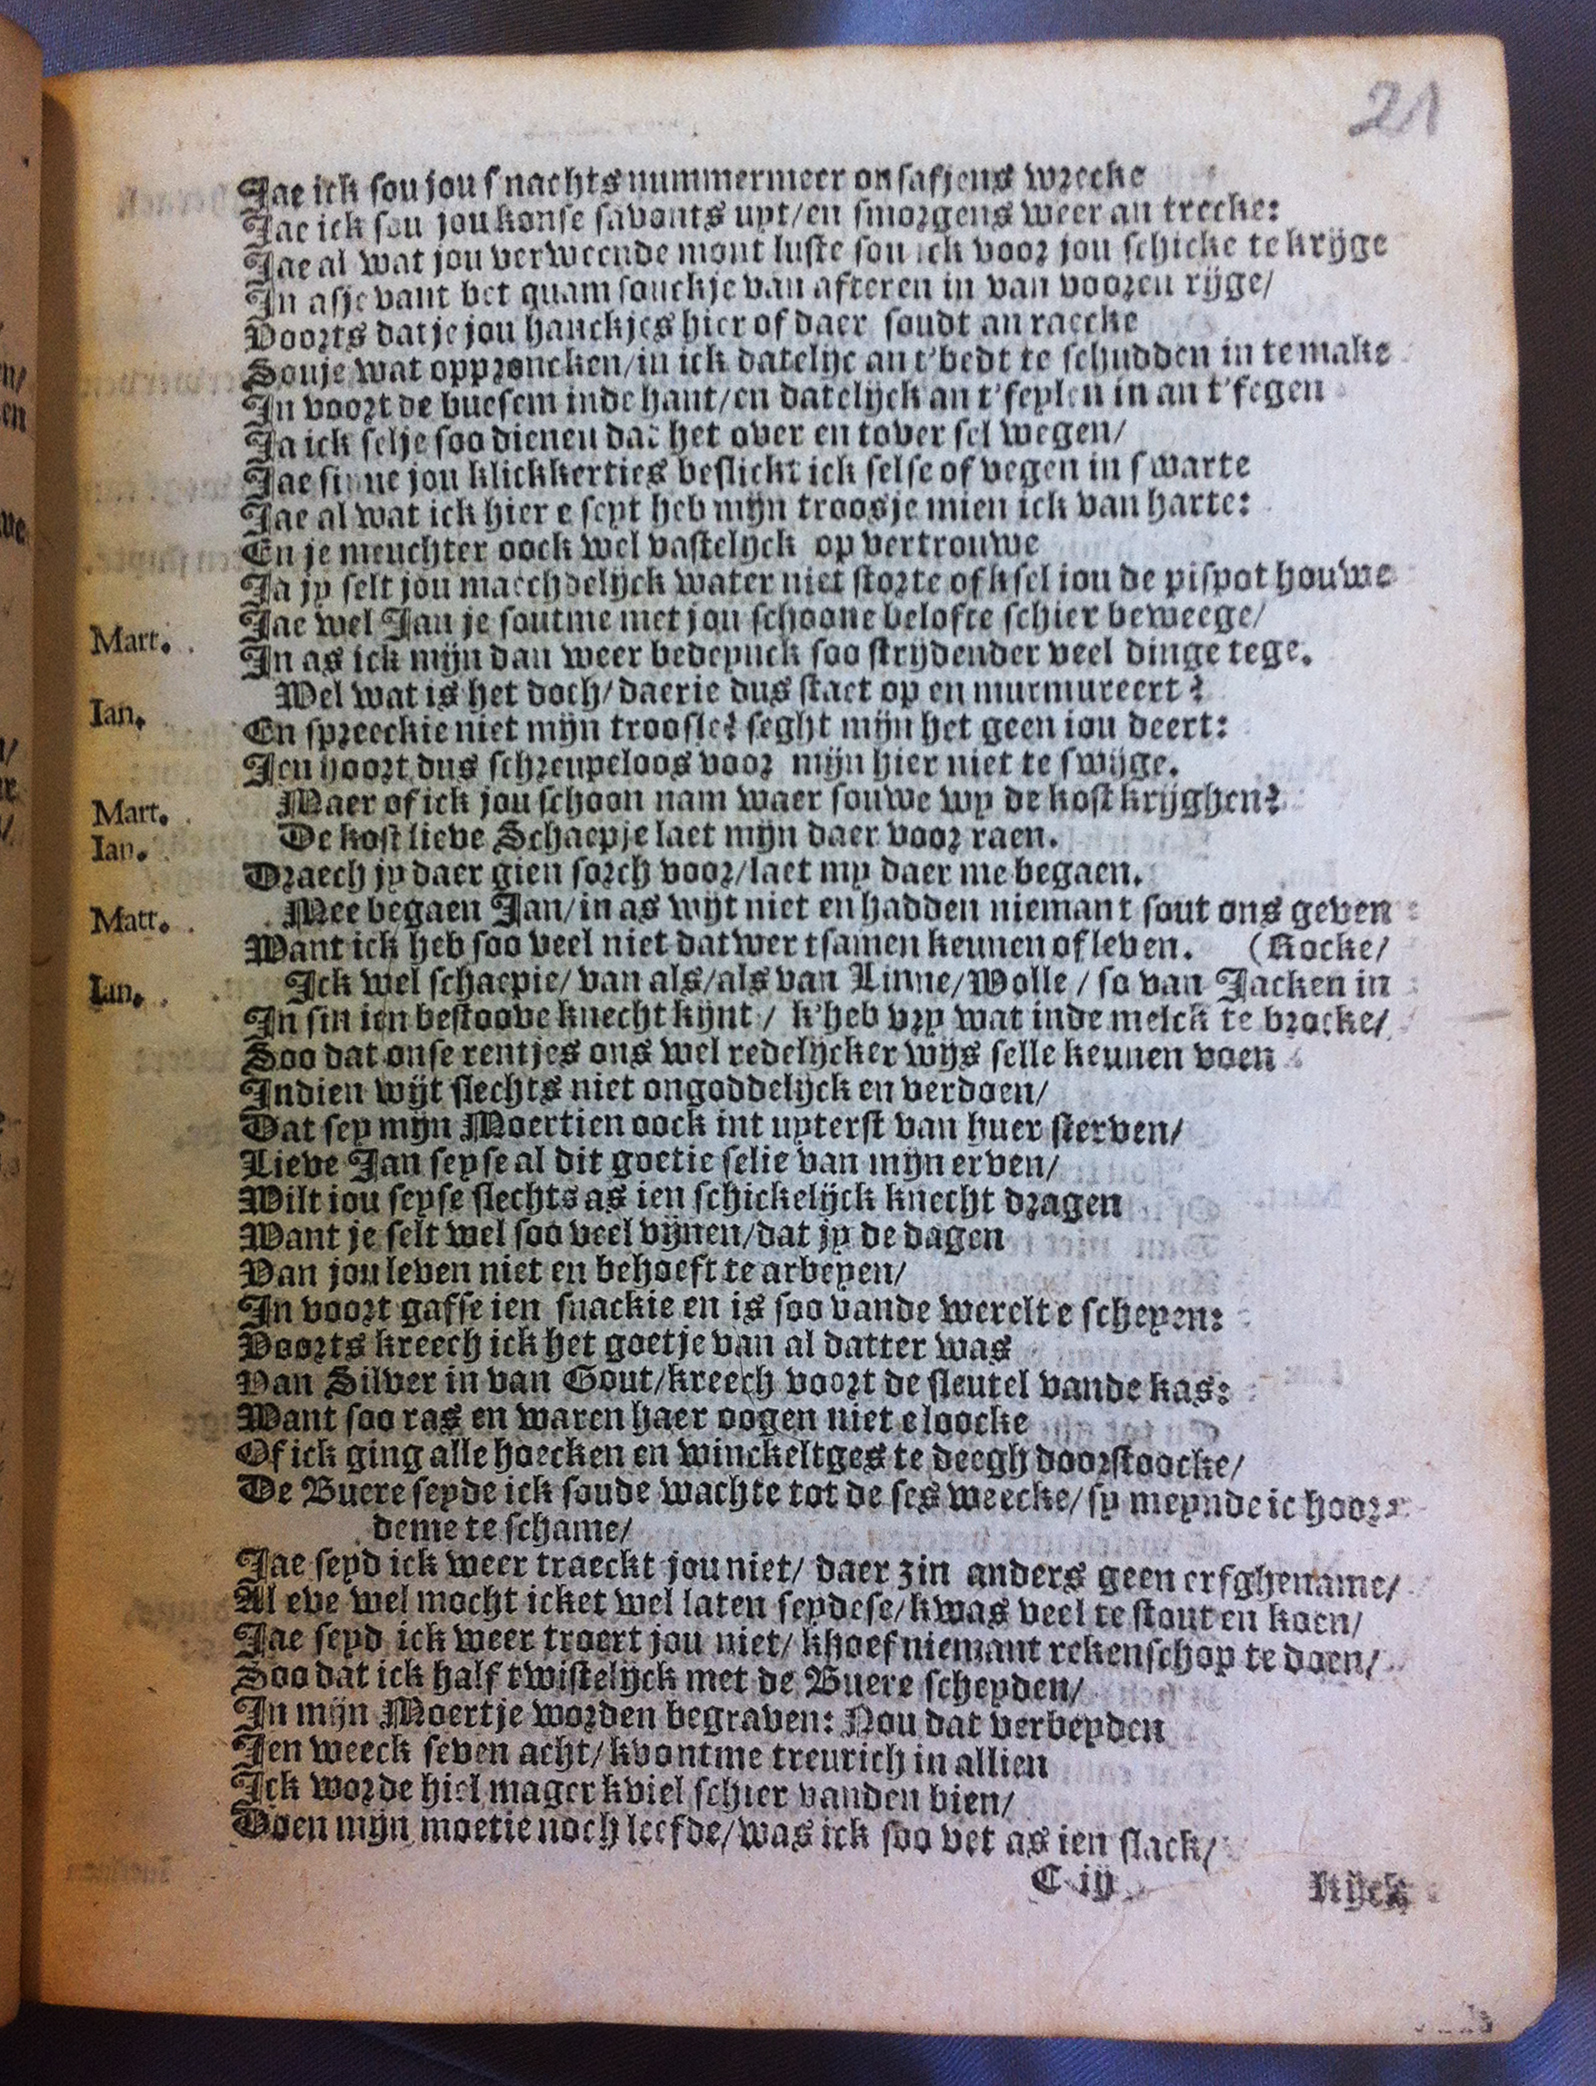 21
Jae ick sou jou s'nachts nummermeer on safjens wrecke
Jae ick sou jou konse savonts uyt/en smorgens weer an trecke:
Jae al wat jou verweende mont luste sou ick voor jou schicke te krijge
In asje vant bet quam souckje van afteren in van vooren rijge/
Voorts dat je jou hanckjes hier of daer soudt an raecke
Souje wat opproncken/in ick datelijc an t'bedt te schudden in te make
In voort de buesem inde hant/en datelijck an t'feylen in an t'fegen
Ja ick selje soo dienen dat het over en tover sel wegen/
Jae sinne jou klickkerties beslickt ick selse of vegen in swarte
Jae al wat ick hier e seyt heb mijn troosje mien ick van harte:
En je meuchter oock wel vastelijck op vertrouwe
Ja jy selt jou maechdelijck water niet storte of ksel iou de pispot houwe
Mart. Jae wel Jan je soutme met jou schoone belofte schier beweege/
In as ick mijn dan weer bedeynck soo strijdender veel dinge tege.
Ian. Wel wat is het doch/daerie dus staet op en murmureert?
En spreeckie niet mijn troosie? seght mijn het geen iou deert:
Jen hoort dus schreupeloos voor mijn hier niet te swijge.
Mart. Maer of ick jou schoon nam waer souwe wy de kost krijghen?
Ian. De kost lieve Schaepje laet mijn daer voor raen.
Draech jy daer gien sorch voor/laet my daer me begaen.
Matt. Mee begaen Jan/in as wijt niet en hadden niemant sout ons geven
Want ick heb soo veel niet dat wer tsamen keunen of leven. (Rocke/
Ian. Ick wel schaepie/van als/als van Linne/Wolle/so van Jacken in
In sin ien bestoove knecht kijnt/ k'heb vry wat inde melck te brocke/
Soo dat onse rentjes ons wel redelijcker wijs selle keunen voen
Indien wijt slechts niet ongoddelijck en verdoen/
Dat sey mijn Moertien oock int uyterst van huer sterven/
Lieve Jan seyse al dit goetie selie van mijn erven/
Wilt iou seyse slechts as ien schickelijck knecht dragen
Want je selt wel soo veel vijnen/dat jy de dagen
Van jou leven niet en behoeft te arbeyen/
In voort gaffe ien snackie en is soo vande werelt e scheyen:
Voorts kreech ick het goetje van al datter was
Van Silver in van Gout/kreech voort de sleutel vande kas:
Want soo ras en waren haer oogen niet eloocke
Of ick ging alle hoecken en winckeltges te deegh doorstoocke/
De Buere seyde ick soude wachte tot de ses weecke/sy meynde ic hoor
deme te schame/
Jae seyd ick weer traeckt jou niet/ daer zin anders geen erfghename/
Al eve wel mocht icket wel laten seydese/kwas veel te stout en koen/
Jae seyd ick weer troert jou niet/ khoef niemant rekenschop te doen/
Soo dat ick half twistelijck met de Buere scheyden/
In mijn Moertje worden begraven: Nou dat verbeyden
Jen weeck seven acht/kvontme treurich in allien
Ick worde hiel mager kviel schier vanden bien/
Doen mijn moetie noch leefde/was ick soo vet as ien slack/
C iij
Rijck